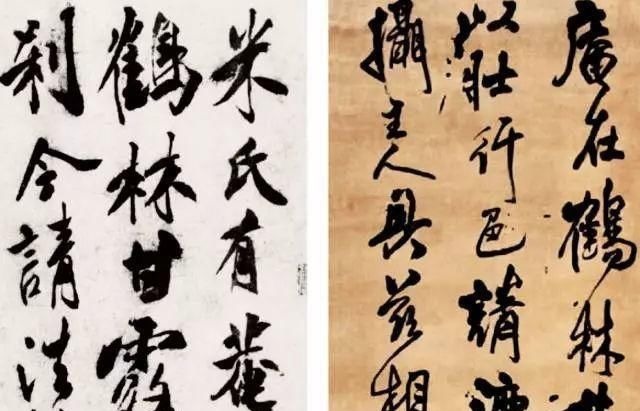 米氏有菴
鶴林甘露
刹今請法
庵在鶴林
以壯行色請
攝主人具茲相